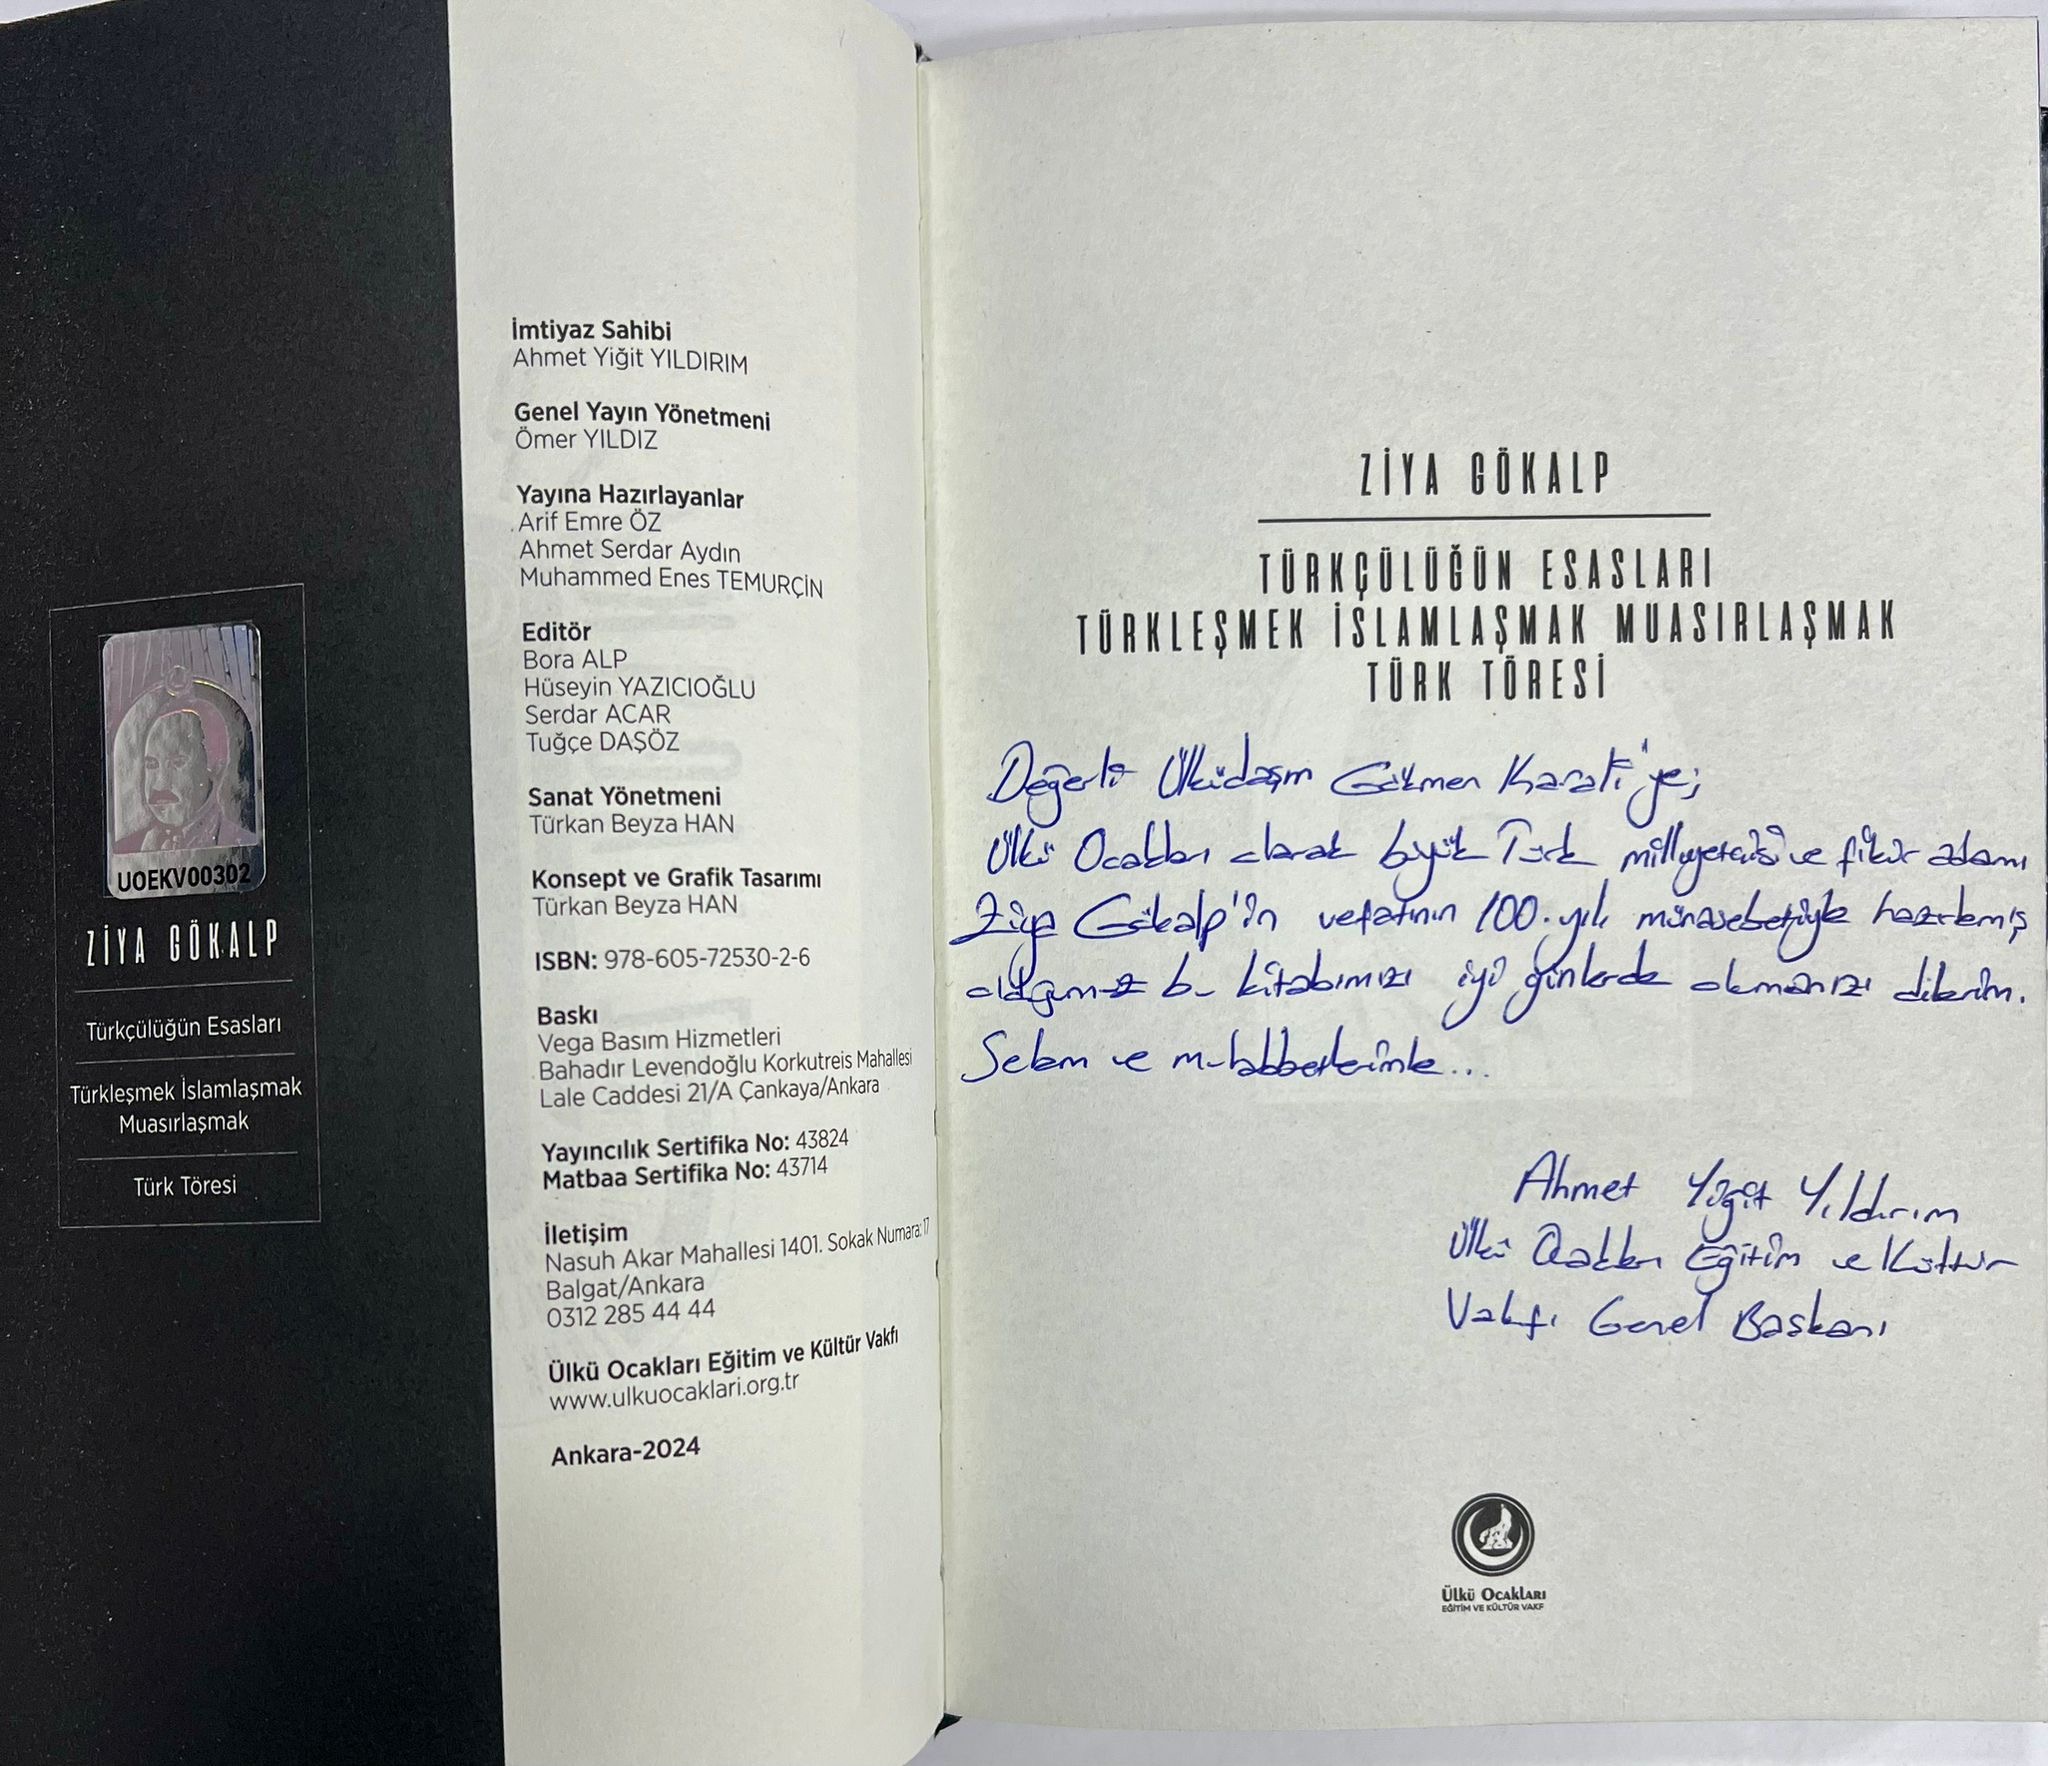 UOEKV00302
ZİYA GÖKALP
Türkçülüğün Esasları
Türkleşmek İslamlaşmak
Muasırlaşmak
Türk Töresi
İmtiyaz Sahibi
Ahmet Yiğit YILDIRIM
Genel Yayın Yönetmeni
Ömer YILDIZ
Yayına Hazırlayanlar
Arif Emre ÖZ
Ahmet Serdar Aydın
Muhammed Enes TEMURÇİN
Editör
Bora ALP
Hüseyin YAZICIOĞLU
Serdar ACAR
Tuğçe DAŞÖZ
Sanat Yönetmeni
Türkan Beyza HAN
Konsept ve Grafik Tasarımı
Türkan Beyza HAN
ISBN: 978-605-72530-2-6
Baskı
Vega Basım Hizmetleri
Bahadır Levendoğlu Korkutreis Mahallesi
Lale Caddesi 21/A Çankaya/Ankara
Yayıncılık Sertifika No: 43824
Matbaa Sertifika No: 43714
İletişim
Nasuh Akar Mahallesi 1401. Sokak Numara: 17
Balgat/Ankara
0312 285 44 44
Ülkü Ocakları Eğitim ve Kültür Vakfı
www.ulkuocaklari.org.tr
Ankara-2024
ZİYA GÖKALP
TÜRKÇÜLÜĞÜN ESASLARI
TÜRKLEŞMEK İSLAMLAŞMAK MUASIRLAŞMAK
TÜRK TÖRESİ
Değerli Ülküdaşım Gökmen
Ülkü Ocakları olarak büyük Türk milliyetçisi ve fikir adamı
Ziya Gökalp'in vefatının 100. yılı münasebetiyle hazırlamış
olduğumuz bu kitabımızı iyi günlerde okumanızı dilerim.
Selam ve muhabbetlerimle...
Ahmet Yiğit Yıldırım
Ülkü Ocakları Eğitim ve Kültür
Vakfı Genel Başkanı
ÜLKÜ OCAKLARI
EĞİTİM VE KÜLTÜR VAKFI